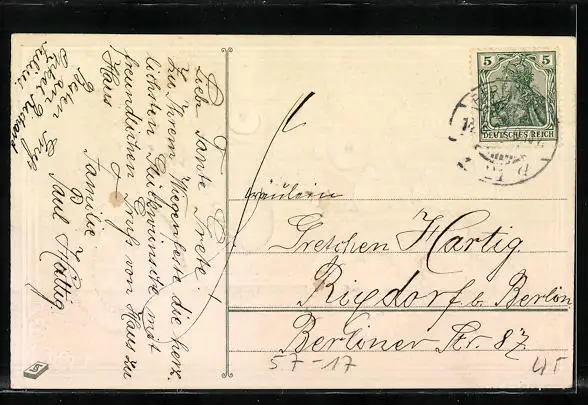 Liebe Tante Grete!
Zu Ihrem Wiegenfeste die herz-
lichsten Glückwünsche mit
freundlichen Gruß von Haus zu
Haus
Familie
Paul Hartig.
Besten Gruß
an
Onkel Richard
5
5
DEUTSCHES REICH
Fräulein
Gretchen Hartig.
Rixdorf b. Berlin
Berliner Str 87.
57-17